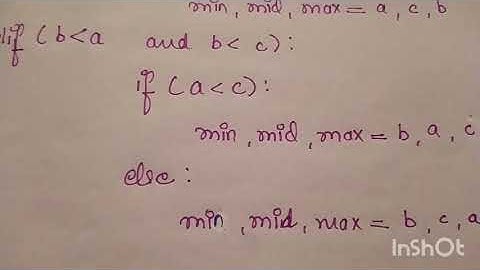 min, mid, max = a, c, b
elif (b<a and b< c):
if (a<c):
min, mid, max = b, a, c
else:
min, mid, max = b, c, a
InShOt